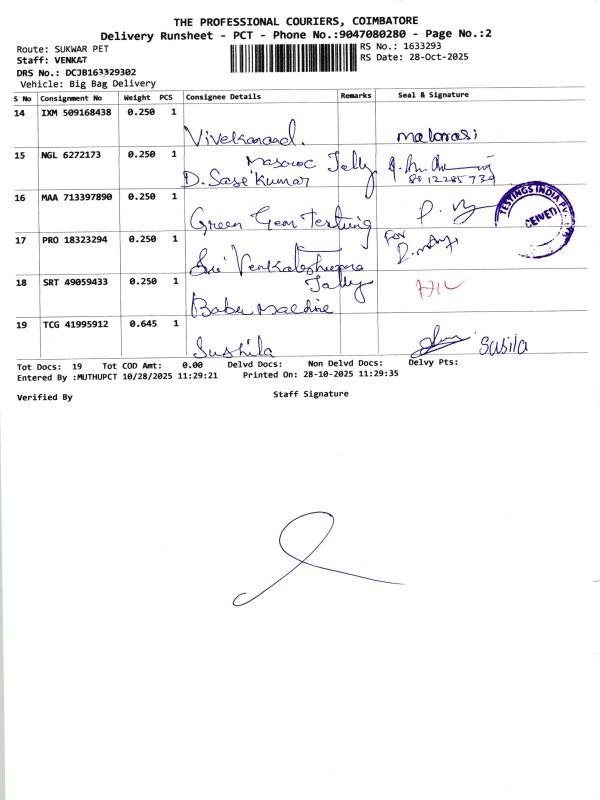 THE PROFESSIONAL COURIERS, COIMBATORE
Delivery Runsheet - PCT - Phone No.:9047080280 - Page No.:2
Route: SUKWAR PET
RS No.: 1633293
Staff: VENKAT
RS Date: 28-Oct-2025
DRS No.: DCJB163329302
Vehicle: Big Bag Delivery
S No Consignment No Weight PCS Consignee Details Remarks Seal & Signature
14 IXM 509168438 0.250 1
Vivekanand. malarasi
15 NGL 6272173 0.250 1
Jolly
D. Sasi Kumar 8012285739
16 MAA 713397890 0.250 1
Green Gem Testing
TESTINGS INDIA PV
CEIVED
17 PRO 18323294 0.250 1
For
Sri Venkateshwara
18 SRT 49059433 0.250 1
Jolly
Babu Machine
19 TCG 41995912 0.645 1
Sushila Susila
Tot Docs: 19 Tot COD Amt: 0.00 Delvd Docs: Non Delvd Docs: Delvy Pts:
Entered By :MUTHUPCT 10/28/2025 11:29:21 Printed On: 28-10-2025 11:29:35
Verified By Staff Signature